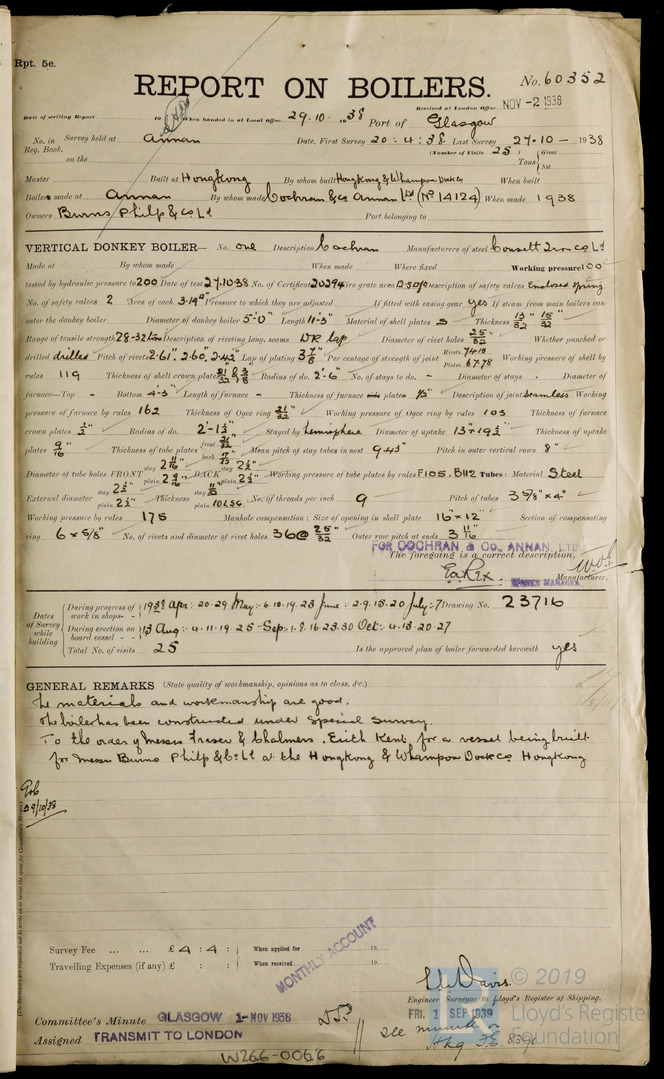 Rpt. 5e.
REPORT ON BOILERS.
No. 60352
Received at London Office NOV -2 1938
Date of writing Report 19 When handed in at Local Office 29.10. 1938 Port of Glasgow
No. in Reg. Book. Survey held at Annan Date, First Survey 20:4:38 Last Survey 27-10- 1938
on the (Number of Visits 25) Tons Gross Net
Master Built at Hongkong By whom built Hongkong & Whampoa Dock Co When built
Boilers made at Annan By whom made Cochran & Co Annan Ltd (No 14124) When made 1938
Owners Burns Philp & Co Ld Port belonging to
VERTICAL DONKEY BOILER— No. one Description Cochran Manufacturers of steel Consett Iron Co Ld
Made at By whom made When made Where fixed Working pressure 100
tested by hydraulic pressure to 200 Date of test 27.10.38 No. of Certificate 20294 Fire grate area Description of safety valves Enclosed Spring
No. of safety valves 2 Area of each 3.14" Pressure to which they are adjusted If fitted with easing gear yes If steam from main boilers can
enter the donkey boiler Diameter of donkey boiler 5'-0" Length 11'-3" Material of shell plates S Thickness 13/32" 15/32"
Range of tensile strength 28-32 tons Description of riveting long. seams DR lap Diameter of rivet holes 25/32" Whether punched or
drilled drilled Pitch of rivets 2.61", 2.60, 2.42" Lap of plating 3 7/8" Per centage of strength of joint Rivets 74.15 Plates 67.78 Working pressure of shell by
rules 119 Thickness of shell crown plates Radius of do. 2'-6" No. of stays to do. - Diameter of stays - Diameter of
furnace—Top - Bottom 4'-3" Length of furnace - Thickness of furnace plates 1/2" Description of joint Seamless Working
pressure of furnace by rules 162 Thickness of Ogee ring 21/32" Working pressure of Ogee ring by rules 103 Thickness of furnace
crown plates 1/2" Radius of do. 2'-1 1/2" Stayed by hemisphere Diameter of uptake 13" × 19 1/2" Thickness of uptake
plates 9/16" Thickness of tube plates front back Mean pitch of stay tubes in nest 9.43" Pitch in outer vertical rows 8"
Diameter of tube holes FRONT stay 2 11/16" plain 2 9/16" BACK stay 2 1/2" plain 2 1/2" Working pressure of tube plates by rules F105. B112 Tubes: Material Steel
External diameter stay 2 1/2" plain 2 1/2" Thickness stay plain 10 LSG. No. of threads per inch 9 Pitch of tubes 3 5/8" × 4"
Working pressure by rules 175 Manhole compensation: Size of opening in shell plate 16" × 12" Section of compensating
ring 6 × 5/8" No. of rivets and diameter of rivet holes 36 @ 25/32" Outer row pitch at ends 3 11/16"
FOR COCHRAN & CO., ANNAN, LTD
The foregoing is a correct description,
WORKS MANAGER. Manufacturer.
Dates of Survey while building
During progress of work in shops - - 1938 Apr: 20.29 May: 6.10.19.23 June: 2.9.15.20 July: 7 Drawing No. 23716
During erection on board vessel - - 13 Aug: 4.11.19.25 Sep: 1.8.16.23.30 Oct: 4.13.20.27
Total No. of visits 25 Is the approved plan of boiler forwarded herewith yes
GENERAL REMARKS (State quality of workmanship, opinions as to class, &c.)
The materials and workmanship are good.
The boiler has been constructed under Special Survey.
To the order of Messrs Fraser & Chalmers. Erith Kent. for a vessel being built
for Messrs Burns Philp & Co Ld at the Hongkong & Whampoa Dock Co Hongkong
Survey Fee ... ... £ 4 : 4 : When applied for 19
Travelling Expenses (if any) £ : : When received 19
MONTHLY ACCOUNT
Engineer Surveyor to Lloyd's Register of Shipping.
© 2019
Lloyd's Register
Foundation
FRI. 1 SEP 1939
Committee's Minute GLASGOW 1- NOV 1938
Assigned TRANSMIT TO LONDON
see minute on
Hkg F.E. 8390
W266-0066